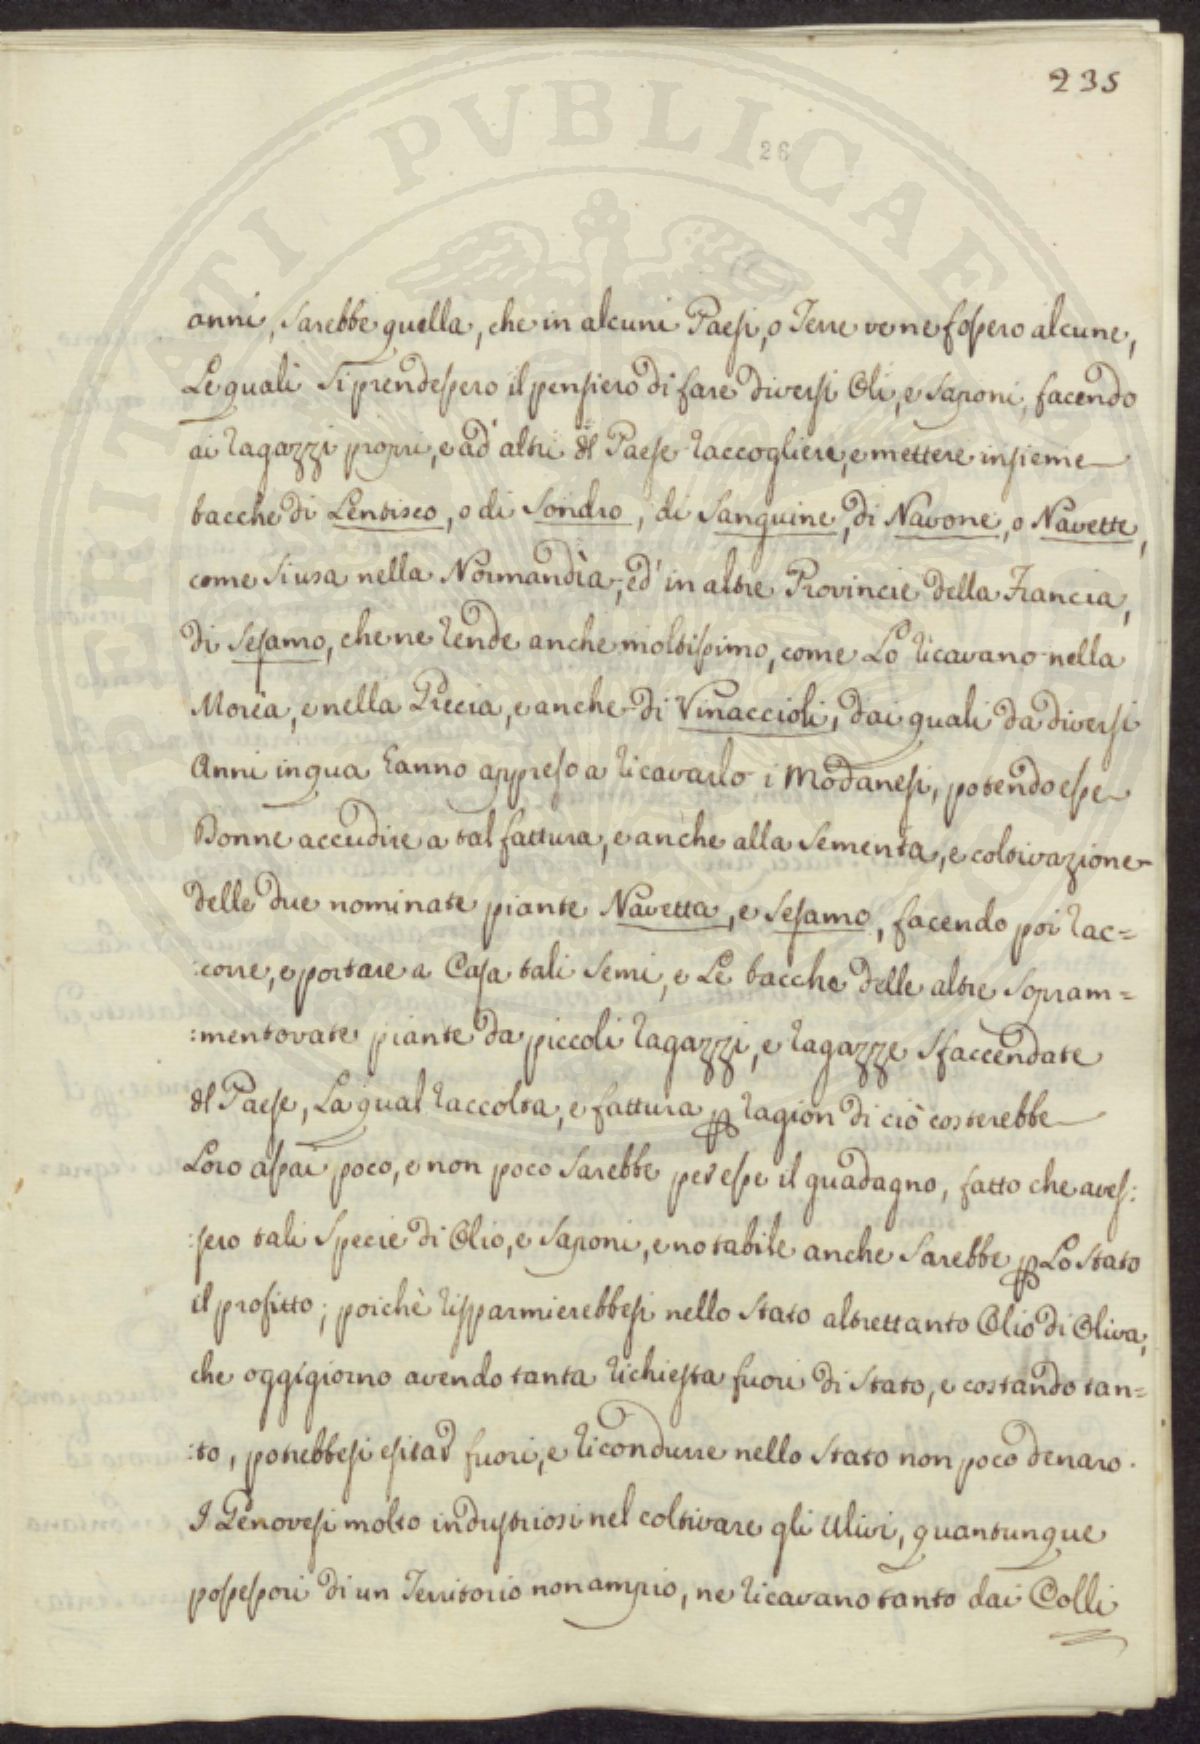 235
26
anni, sarebbe quella, che in alcuni Paesi, o Terre ve ne fossero alcune,
Le quali si prendessero il pensiero di fare diversi Oli, e Saponi, facendo
ai ragazzi propri, e ad' altri dl Paese raccogliere, e mettere insieme
bacche di Lentisco, o di Sondro, di Sanguine, di Navone, o Navette,
come si usa nella Normandìa, ed' in altre Provincie della Francia,
di Sesamo, che ne rende anche moltissimo, come Lo ricavano nella
Morèa, e nella Grecia, e anche di Vinaccioli, dai quali da diversi
Anni in qua hanno appreso a ricavarlo i Modanesi, potendo esse
Donne accudire a tal fattura, e anche alla sementa, e coltivazione
delle due nominate piante Navetta, e Sesamo, facendo poi rac=
:corre, e portare a Casa tali semi, e Le bacche delle altre sopram=
:mentovate piante da piccoli ragazzi, e ragazze sfaccendate
dl Paese, La qual raccolta, e fattura p ragion di ciò costerebbe
Loro assai poco, e non poco sarebbe per esse il guadagno, fatto che aves:
:sero tali specie di Olio, e Saponi, e notabile anche sarebbe p Lo Stato
il profitto; poichè risparmierebbesi nello Stato altrettanto Olio di Oliva,
che oggigiorno avendo tanta richiesta fuori di Stato, e costando tan=
:to, potrebbesi esitar fuori, e ricondurre nello Stato non poco denaro.
I Genovesi molto industriosi nel coltivare gli Ulivi, quantunque
possessori di un Territorio non ampio, ne ricavano tanto dai Colli
PERITATI PUBLICAE